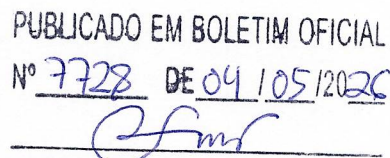 PUBLICADO EM BOLETIM OFICIAL
Nº 7728 DE 04 / 05 /2026